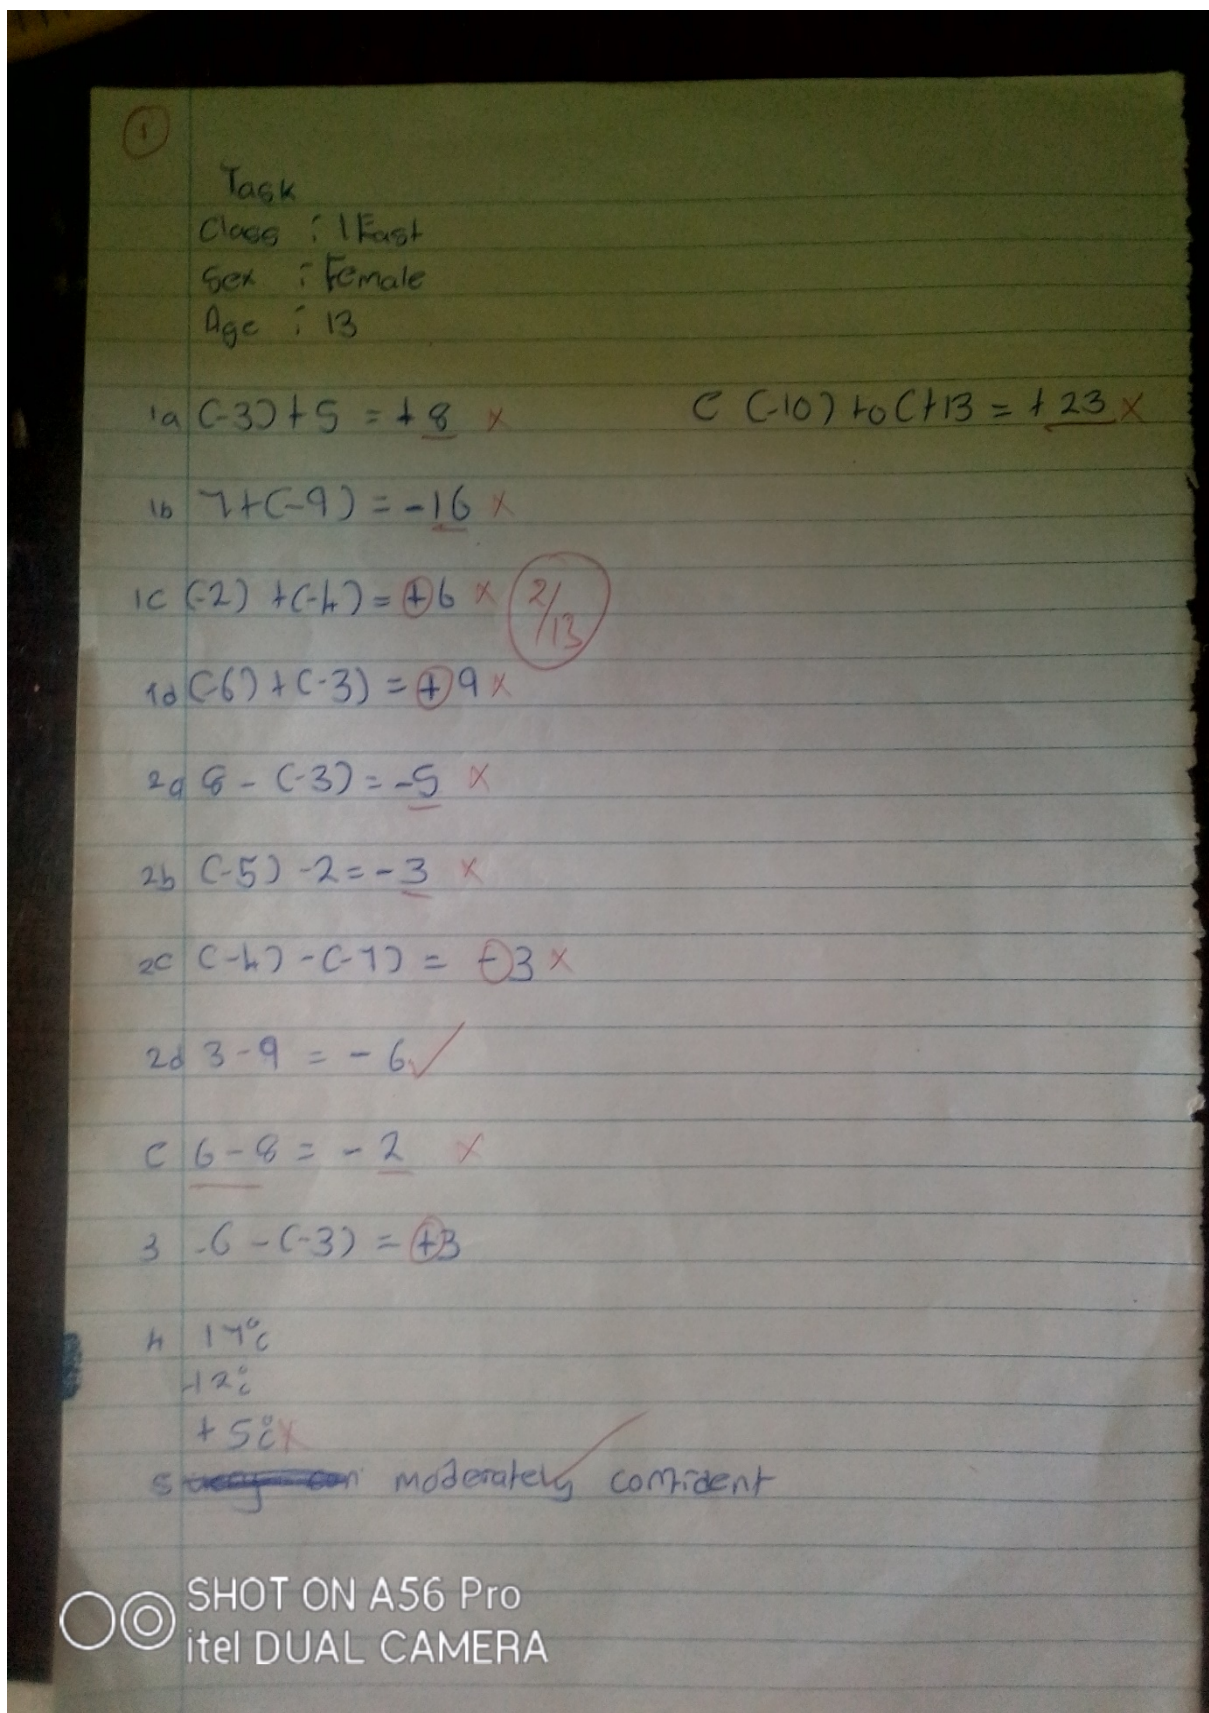 1
Task
Class : 1 East
Sex : Female
Age : 13
1a (-3)+5 = +8 x
e (-10) to (+13 = +23 x
1b 7+(-9) = -16 x
1c (-2) +(-4) = +6 x 2/13
1d (-6)+(-3) = +9 x
2a 8 - (-3) = -5 x
2b (-5) -2 = -3 x
2c (-4) -(-7) = -3 x
2d 3-9 = -6 ✓
e 6-8 = -2 x
3 -6 -(-3) = +3
4 17°c
-12°c
+5°c x
5 moderately confident ✓
SHOT ON A56 Pro
itel DUAL CAMERA